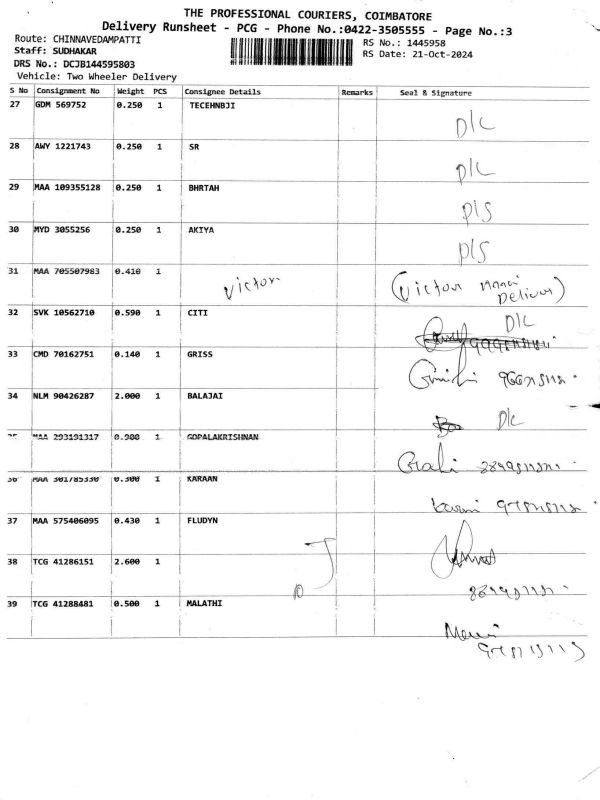 THE PROFESSIONAL COURIERS, COIMBATORE
Delivery Runsheet - PCG - Phone No.:0422-3505555 - Page No.:3
Route: CHINNAVEDAMPATTI
RS No.: 1445958
Staff: SUDHAKAR
RS Date: 21-Oct-2024
DRS No.: DCJB144595803
Vehicle: Two Wheeler Delivery
S No Consignment No Weight PCS Consignee Details Remarks Seal & Signature
27 GDM 569752 0.250 1 TECEHNBJI
D/C
28 AWY 1221743 0.250 1 SR
D/C
29 MAA 109355128 0.250 1 BHRTAH
P/S
30 MYD 3055256 0.250 1 AKIYA
P/S
31 MAA 705507983 0.410 1
Victor (Victor
32 SVK 10562710 0.590 1 CITI
D/C
33 CMD 70162751 0.140 1 GRISS
34 NLM 90426287 2.000 1 BALAJAI
D/C
35 MAA 293191317 0.900 1 GOPALAKRISHNAN
36 MAA 301785330 0.300 1 KARAAN
37 MAA 575406095 0.430 1 FLUDYN
38 TCG 41286151 2.600 1
39 TCG 41288481 0.500 1 MALATHI